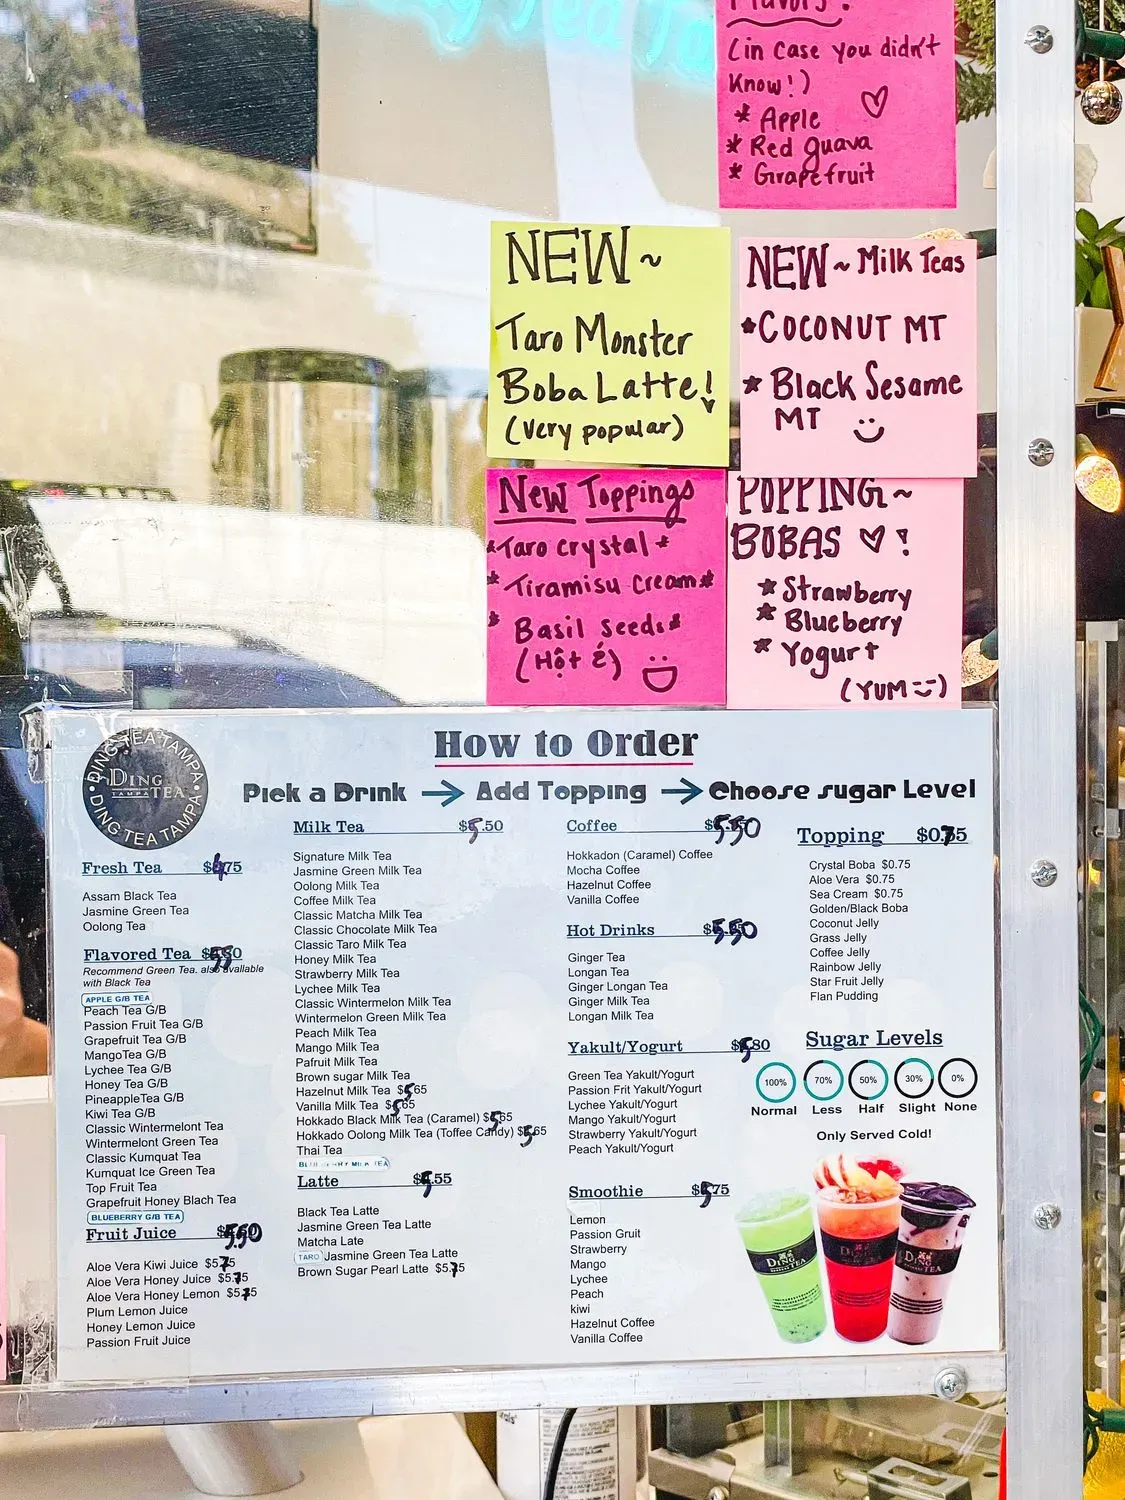 Flavors!
(in case you didn't
Know!)
* Apple
* Red guava
* Grapefruit
NEW~
Taro Monster
Boba Latte!
(very popular)
NEW~Milk Teas
*COCONUT MT
* Black Sesame
MT
New Toppings
*Taro crystal*
* Tiramisu cream*
* Basil seeds*
(Hột É)
POPPING~
BOBAS !
* Strawberry
* Blueberry
* Yogurt
(YUM)
DING TEA TAMPA
DING TEA TAMPA
DING
TAMPA TEA
How to Order
Pick a Drink → Add Topping → Choose sugar Level
Fresh Tea $4.75
Assam Black Tea
Jasmine Green Tea
Oolong Tea
Flavored Tea
Recommend Green Tea. also available
with Black Tea
APPLE G/B TEA
Peach Tea G/B
Passion Fruit Tea G/B
Grapefruit Tea G/B
MangoTea G/B
Lychee Tea G/B
Honey Tea G/B
PineappleTea G/B
Kiwi Tea G/B
Classic Wintermelont Tea
Wintermelont Green Tea
Classic Kumquat Tea
Kumquat Ice Green Tea
Top Fruit Tea
Grapefruit Honey Blach Tea
BLUEBERRY G/B TEA
Fruit Juice 5.50
Aloe Vera Kiwi Juice $5.75
Aloe Vera Honey Juice $5.75
Aloe Vera Honey Lemon $5.75
Plum Lemon Juice
Honey Lemon Juice
Passion Fruit Juice
Milk Tea $5.50
Signature Milk Tea
Jasmine Green Milk Tea
Oolong Milk Tea
Coffee Milk Tea
Classic Matcha Milk Tea
Classic Chocolate Milk Tea
Classic Taro Milk Tea
Honey Milk Tea
Strawberry Milk Tea
Lychee Milk Tea
Classic Wintermelon Milk Tea
Wintermelon Green Milk Tea
Peach Milk Tea
Mango Milk Tea
Pafruit Milk Tea
Brown sugar Milk Tea
Hazelnut Milk Tea $5.65
Vanilla Milk Tea $5.65
Hokkado Black Milk Tea (Caramel) $5.65
Hokkado Oolong Milk Tea (Toffee Candy) $5.65
Thai Tea
BLUEBERRY MILK TEA
Latte $5.55
Black Tea Latte
Jasmine Green Tea Latte
Matcha Late
TARO Jasmine Green Tea Latte
Brown Sugar Pearl Latte $5.75
Coffee $5.50
Hokkadon (Caramel) Coffee
Mocha Coffee
Hazelnut Coffee
Vanilla Coffee
Hot Drinks $5.50
Ginger Tea
Longan Tea
Ginger Longan Tea
Ginger Milk Tea
Longan Milk Tea
Yakult/Yogurt $5.80
Green Tea Yakult/Yogurt
Passion Frit Yakult/Yogurt
Lychee Yakult/Yogurt
Mango Yakult/Yogurt
Strawberry Yakult/Yogurt
Peach Yakult/Yogurt
Smoothie $5.75
Lemon
Passion Gruit
Strawberry
Mango
Lychee
Peach
kiwi
Hazelnut Coffee
Vanilla Coffee
Topping $0.75
Crystal Boba $0.75
Aloe Vera $0.75
Sea Cream $0.75
Golden/Black Boba
Coconut Jelly
Grass Jelly
Coffee Jelly
Rainbow Jelly
Star Fruit Jelly
Flan Pudding
Sugar Levels
100% 70% 50% 30% 0%
Normal Less Half Slight None
Only Served Cold!
DING TEA
DING TEA
DING TEA